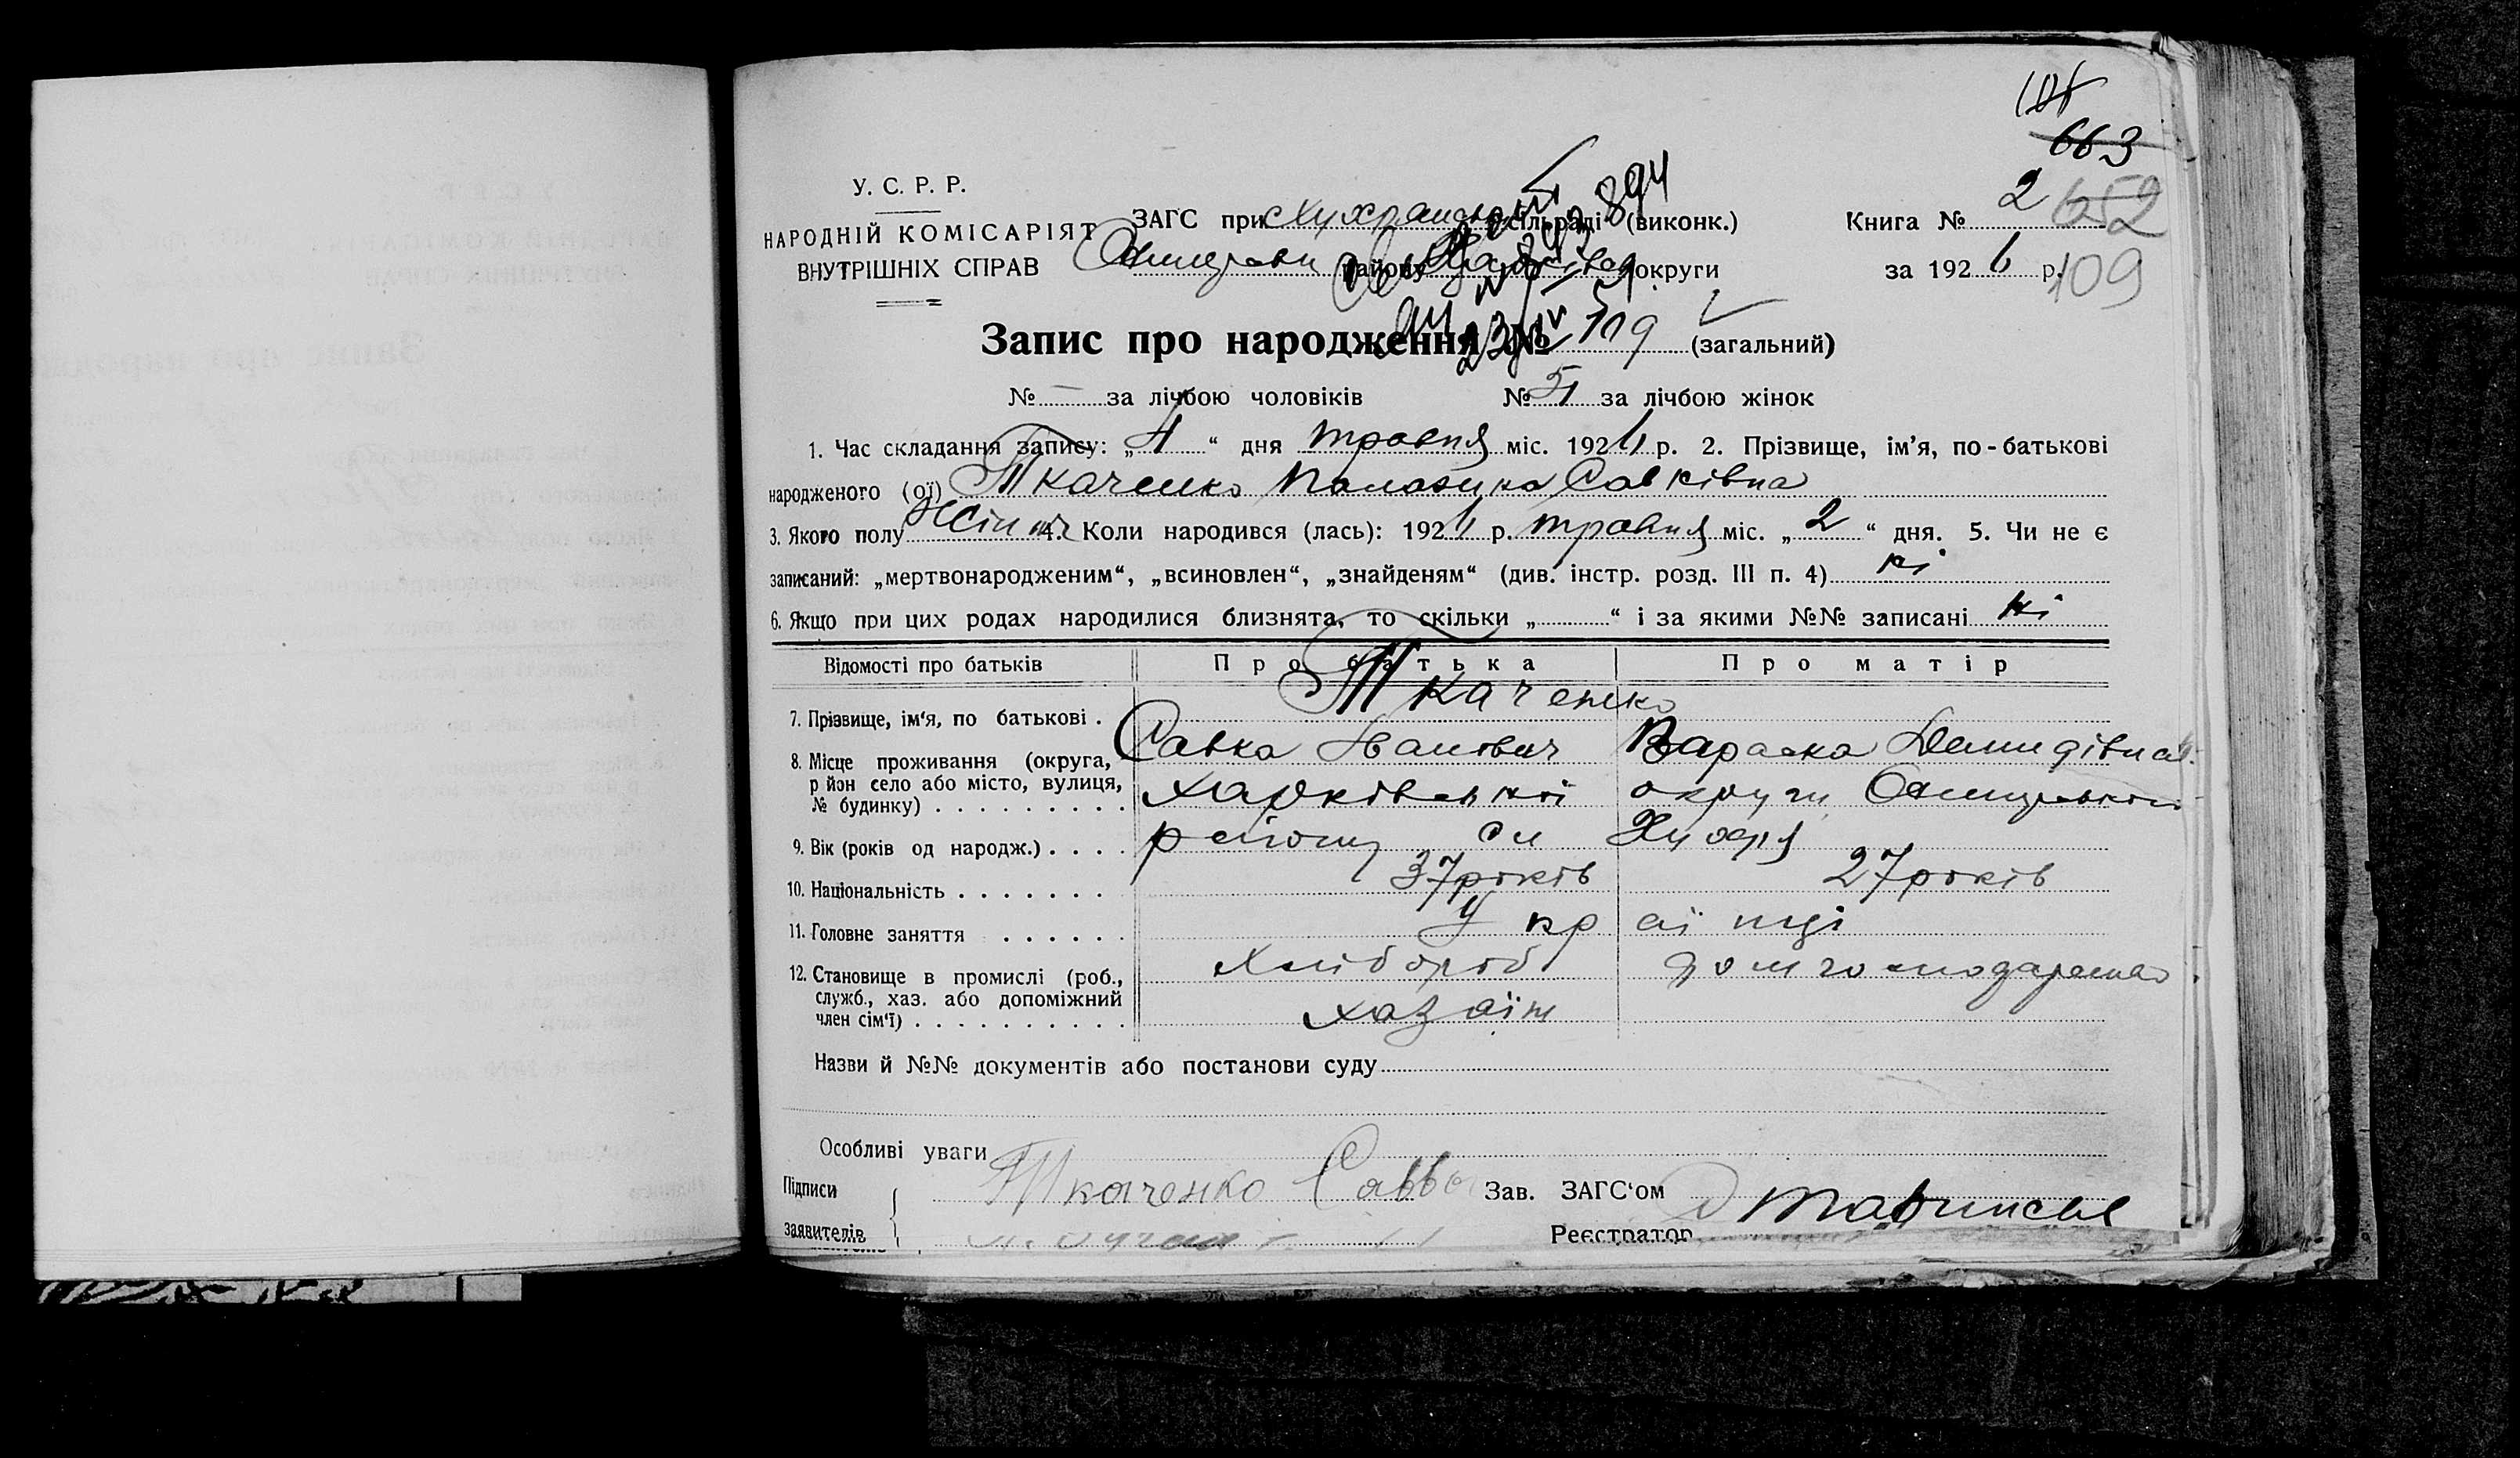 108
663
652
109
У. С. Р. Р.
НАРОДНІЙ КОМІСАРІЯТ
ВНУТРІШНІХ СПРАВ
ЗАГС при сільраді (виконк.)
району округи
Книга № 2
за 1926 р.
Запис про народження № 109 (загальний)
№ — за лічбою чоловіків № 51 за лічбою жінок
1. Час складання запису: „4“ дня травня міс. 1926 р. 2. Прізвище, ім’я, по-батькові
народженого (ої) Ткаченко Палажка Савківна
3. Якого полу 4. Коли народився (лась): 1926 р. травня міс. „2“ дня. 5. Чи не є
записаний: „мертвонародженим“, „всиновлен“, „знайденям“ (див. інстр. розд. III п. 4) ні
6. Якщо при цих родах народилися близнята, то скільки „ “ і за якими №№ записані ні
Відомості про батьків Про батька Про матір
Ткаченко
7. Прізвище, ім‘я, по батькові .
Савка Іванович Вараска Демидівна
8. Місце проживання (округа,
р йон село або місто, вулиця,
№ будинку)
Харківської округи
району
9. Вік (років од народж.)
37 років 27 років
10. Національність
Українці
11. Головне заняття
Хлібороб домгосподарка
12. Становище в промислі (роб.,
служб., хаз. або допоміжний
член сім‘ї)
хазяїн
Назви й №№ документів або постанови суду
Особливі уваги
Підписи
заявителів
Ткаченко Савва
Зав. ЗАГС‘ом
Реєстратор